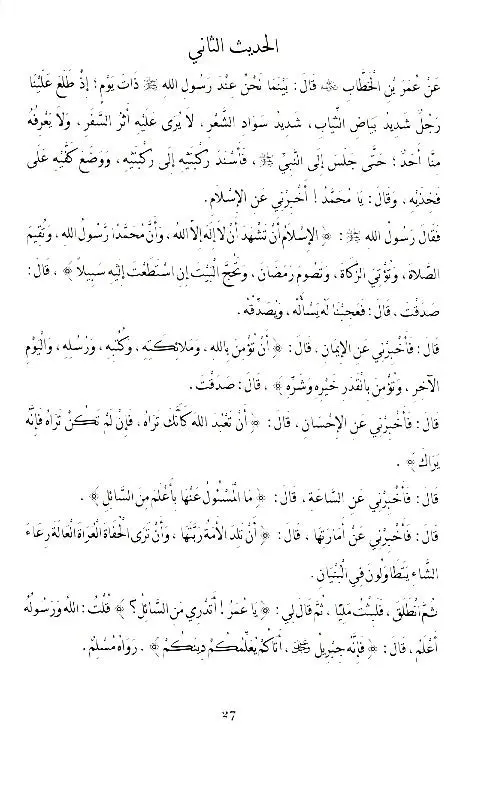 الحديث الثاني
عَنْ عُمَرَ بْنِ الْخَطَّابِ ﷺ قَالَ: بَيْنَمَا نَحْنُ عِنْدَ رَسُولِ اللهِ ﷺ ذَاتَ يَوْمٍ؛ إِذْ طَلَعَ عَلَيْنَا
رَجُلٌ شَدِيدُ بَيَاضِ الثِّيَابِ، شَدِيدُ سَوَادِ الشَّعْرِ، لَا يُرَى عَلَيْهِ أَثَرُ السَّفَرِ، وَلَا يَعْرِفُهُ
مِنَّا أَحَدٌ؛ حَتَّى جَلَسَ إِلَى النَّبِيِّ ﷺ، فَأَسْنَدَ رُكْبَتَيْهِ إِلَى رُكْبَتَيْهِ، وَوَضَعَ كَفَّيْهِ عَلَى
فَخِذَيْهِ، وَقَالَ: يَا مُحَمَّدُ! أَخْبِرْنِي عَنِ الإِسْلَامِ.
فَقَالَ رَسُولُ اللهِ ﷺ: ﴿ الإِسْلَامُ أَنْ تَشْهَدَ أَنْ لَا إِلَهَ إِلَّا اللهُ، وَأَنَّ مُحَمَّدًا رَسُولُ اللهِ، وَتُقِيمَ
الصَّلَاةَ، وَتُؤْتِيَ الزَّكَاةَ، وَتَصُومَ رَمَضَانَ، وَتَحُجَّ الْبَيْتَ إِنِ اسْتَطَعْتَ إِلَيْهِ سَبِيلاً ﴾، قَالَ:
صَدَقْتَ، قَالَ: فَعَجِبْنَا لَهُ يَسْأَلُهُ، وَيُصَدِّقُهُ.
قَالَ: فَأَخْبِرْنِي عَنِ الإِيمَانِ، قَالَ: ﴿ أَنْ تُؤْمِنَ بِاللهِ، وَمَلَائِكَتِهِ، وَكُتُبِهِ، وَرُسُلِهِ، وَالْيَوْمِ
الآخِرِ، وَتُؤْمِنَ بِالْقَدَرِ خَيْرِهِ وَشَرِّهِ ﴾، قَالَ: صَدَقْتَ.
قَالَ: فَأَخْبِرْنِي عَنِ الإِحْسَانِ، قَالَ: ﴿ أَنْ تَعْبُدَ اللهَ كَأَنَّكَ تَرَاهُ، فَإِنْ لَمْ تَكُنْ تَرَاهُ فَإِنَّهُ
يَرَاكَ ﴾.
قَالَ: فَأَخْبِرْنِي عَنِ السَّاعَةِ، قَالَ: ﴿ مَا الْمَسْئُولُ عَنْهَا بِأَعْلَمَ مِنَ السَّائِلِ ﴾.
قَالَ: فَأَخْبِرْنِي عَنْ أَمَارَتِهَا، قَالَ: ﴿ أَنْ تَلِدَ الأَمَةُ رَبَّتَهَا، وَأَنْ تَرَى الْحُفَاةَ الْعُرَاةَ الْعَالَةَ رِعَاءَ
الشَّاءِ يَتَطَاوَلُونَ فِي الْبُنْيَانِ.
ثُمَّ انْطَلَقَ، فَلَبِثْتُ مَلِيًّا، ثُمَّ قَالَ لِي: ﴿ يَا عُمَرُ! أَتَدْرِي مَنِ السَّائِلُ؟ ﴾ قُلْتُ: اللهُ وَرَسُولُهُ
أَعْلَمُ، قَالَ: ﴿ فَإِنَّهُ جِبْرِيلُ، أَتَاكُمْ يُعَلِّمُكُمْ دِينَكُمْ ﴾. رَوَاهُ مُسْلِمٌ.
27